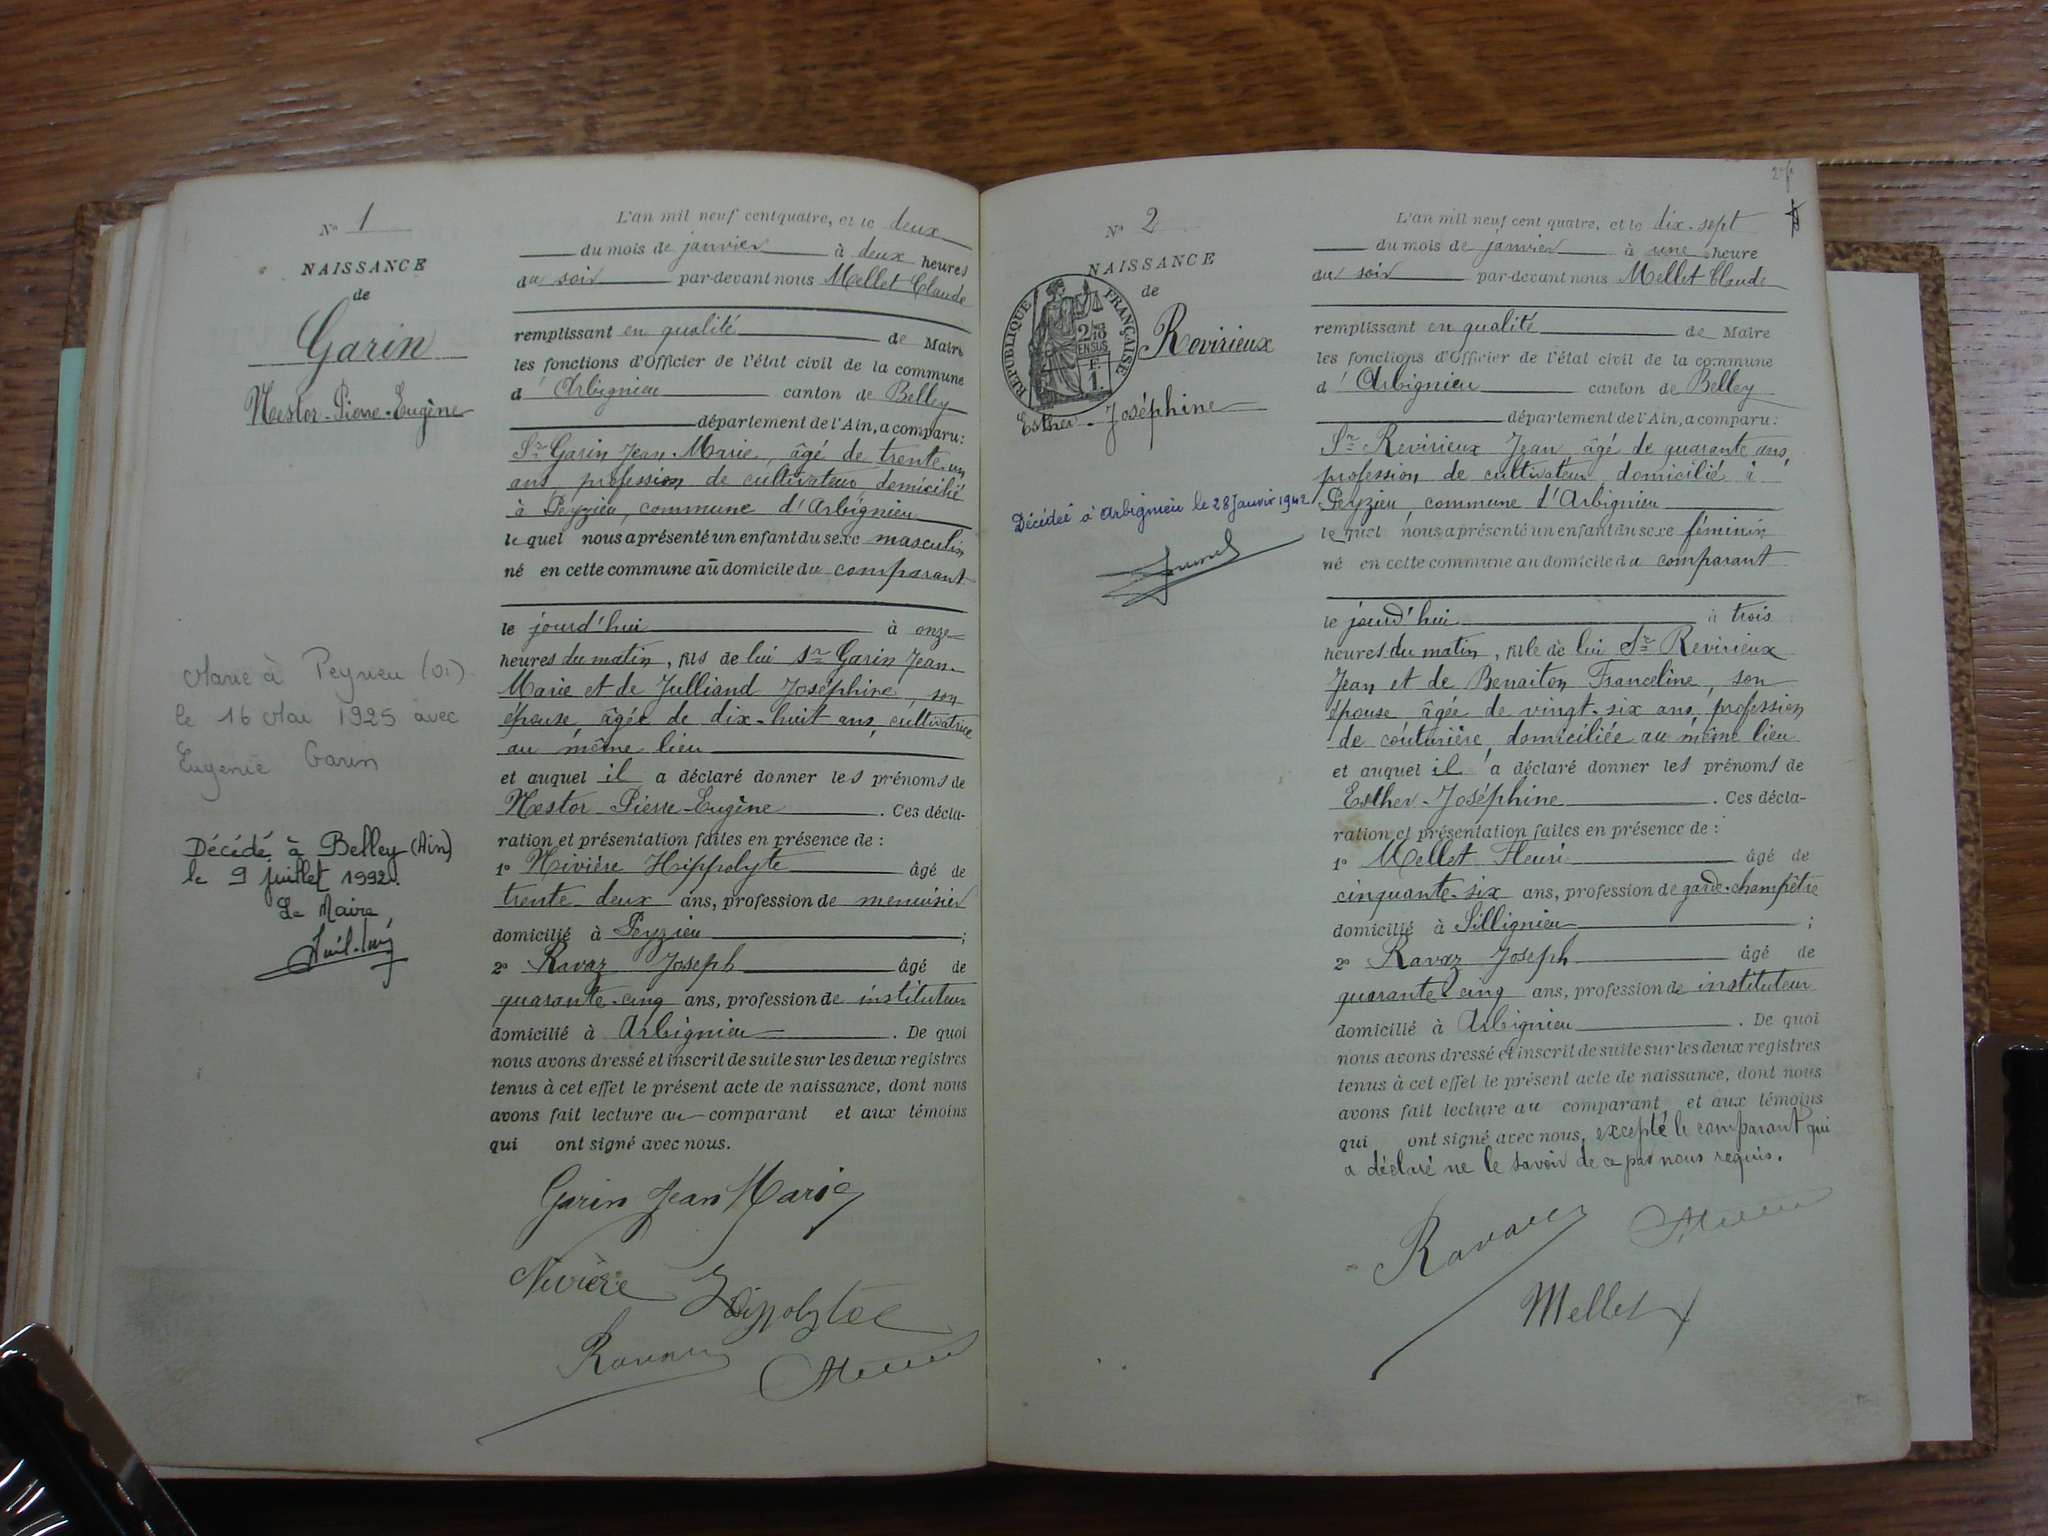 N° 1
NAISSANCE
de
Garin
Nestor-Pierre-Eugène
Marié à Peyrieu (01)
le 16 Mai 1925 avec
Eugénie Garin
Décédé à Belley (Ain)
le 9 juillet 1992.
Le Maire,
L'an mil neuf cent quatre, et le deux
du mois de janvier à deux heures
du soir par-devant nous Mellet Claude
remplissant en qualité de Maire
les fonctions d'Officier de l'état civil de la commune
d'Arbignieu canton de Belley
département de l'Ain, a comparu:
Sr Garin Jean-Marie, âgé de trente-un
ans, profession de cultivateur, domicilié
à Peyzieu, commune d'Arbignieu
le quel nous a présenté un enfant du sexe masculin
né en cette commune au domicile du comparant
le jourd'hui à onze
heures du matin, fils de lui Sr Garin Jean-
Marie et de Julliand Joséphine, son
épouse âgée de dix-huit ans, cultivatrice
au même lieu
et auquel il a déclaré donner les prénoms de
Nestor-Pierre-Eugène. Ces décla-
ration et présentation faites en présence de :
1° Nivière Hippolyte âgé de
trente-deux ans, profession de menuisier
domicilié à Peyzieu ;
2° Ravaz Joseph âgé de
quarante-cinq ans, profession de instituteur
domicilié à Arbignieu. De quoi
nous avons dressé et inscrit de suite sur les deux registres
tenus à cet effet le présent acte de naissance, dont nous
avons fait lecture au comparant et aux témoins
qui ont signé avec nous.
Garin Jean Marie
Nivière Hippolyte
Ravaz
N° 2
NAISSANCE
de
RÉPUBLIQUE FRANÇAISE
2/10
EN SUS
F.
1.
Revirieux
Esther-Joséphine
Décédée à Arbignieu le 28 Janvier 1942
L'an mil neuf cent quatre, et le dix-sept
du mois de janvier à une heure
du soir par-devant nous Mellet Claude
remplissant en qualité de Maire
les fonctions d'Officier de l'état civil de la commune
d'Arbignieu canton de Belley
département de l'Ain, a comparu:
Sr Revirieux Jean, âgé de quarante ans,
profession de cultivateur, domicilié à
Peyzieu, commune d'Arbignieu
le quel nous a présenté un enfant du sexe féminin
né en cette commune au domicile du comparant
le jourd'hui à trois
heures du matin, fille de lui Sr Revirieux
Jean et de Benaiton Franceline, son
épouse âgée de vingt-six ans, profession
de couturière, domiciliée au même lieu
et auquel il a déclaré donner les prénoms de
Esther-Joséphine. Ces décla-
ration et présentation faites en présence de :
1° Mellet Fleuri âgé de
cinquante-six ans, profession de garde-champêtre
domicilié à Sillignieu ;
2° Ravaz Joseph âgé de
quarante-cinq ans, profession de instituteur
domicilié à Arbignieu. De quoi
nous avons dressé et inscrit de suite sur les deux registres
tenus à cet effet le présent acte de naissance, dont nous
avons fait lecture au comparant et aux témoins
qui ont signé avec nous, excepté le comparant qui
a déclaré ne le savoir de ce par nous requis.
Ravaz
Mellet